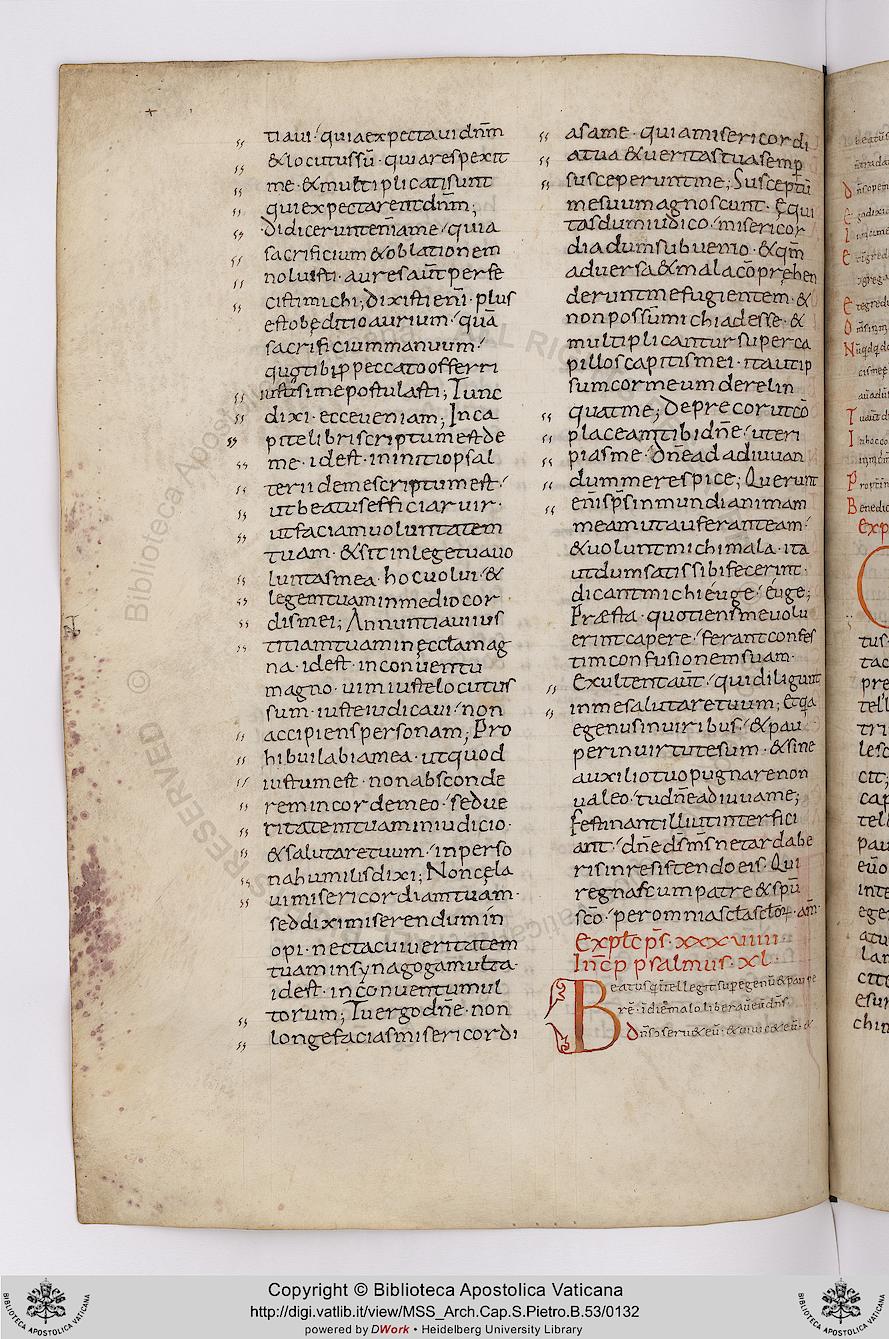 tiaui · quia expectaui dn̄m
& locutus sū · quia respexit
me · & multiplicati sunt
qui expectarent dn̄m ;
Didicerunt enī a me · quia
sacrificium & oblationem
noluisti · aures aūt perfe
cisti michi ; Dixisti enī · plus
est obęditio aurium · quā
sacrificium manuum ·
pro peccato offerri
iustissime postulasti ; Tunc
dixi · ecce ueniam ; In ca
pite libri scriptum est de
me · id est · in initio psal
terii de me scriptum est ·
ut beatus efficiar uir ·
ut faciam uoluntatem
tuam · & sit in lege tua uo
luntas mea · hoc uolui · &
legem tuam in medio cor
dis mei ; Annuntiaui ius
titiam tuam in ęcclā mag
na · id est · in conuentu
magno · uim iuste locutus
sum · iuste iudicaui · non
accipiens personam ; Pro
hibui labia mea · ut quod
iustum est · non absconde
rem in corde meo · sed ue
ritatem tuam in iudicio ·
& salutare tuum · in perso
na humilis dixi ; Non cęla
ui misericordiam tuam ·
sed dixi miserendum in
opi · nec tacui ueritatem
tuam in synagoga multa ·
id est · in conuentu mul
torum ; Tu ergo dn̄e · non
longe facias misericordi
as a me · quia misericordi
a tua & ueritas tua semp̄
susceperunt me ; Susceptū
me suum agnoscunt · Ęqui
tas dum iudico · misericor
dia dum subuenio · & qm̄
aduersa & mala cōprehen
derunt me fugientem · &
non possūm michi adesse · &
multiplicantur super ca
pillos capitis mei · ita ut ip
sum cor meum derelin
quat me ; Deprecor ut cō
placeam tibi dn̄e · ut eri
pias me · dn̄e ad adiuuan
dum me respice ; Querunt
enī sp̄s inmundi animam
meam ut auferant eam ·
& uolunt michi mala · ita
ut dum satis sibi fecerint ·
dicant michi éuge · éuge ;
Præsta · quotiens me uolu
erint capere · ferant confes
tim confusionem suam ·
Exultent aūt · qui diligunt
in me salutare tuum ; Et qa
egenus in uiribus · & pau
per in uirtute sum · & sine
auxilio tuo pugnare non
ualeo · tu dn̄e adiuua me ;
festinant illi ut interfici
ant · dn̄e ds̄ ms̄ ne tardabe
ris in resistendo eis · Qui
regnas cum patre & spū
scō · per omnia sctā sctōr · am̄
Explc̄ ps̄ · xxxuiiii
Inc̄p psalmus · xl ·
Beatus qui intellegit sup egenū & paupe
rē · in die malo liberauit eū dn̄s
Dn̄s conseruet eū · & uiuificet eū · &
Copyright © Biblioteca Apostolica Vaticana
http://digi.vatlib.it/view/MSS_Arch.Cap.S.Pietro.B.53/0132
powered by DWork • Heidelberg University Library